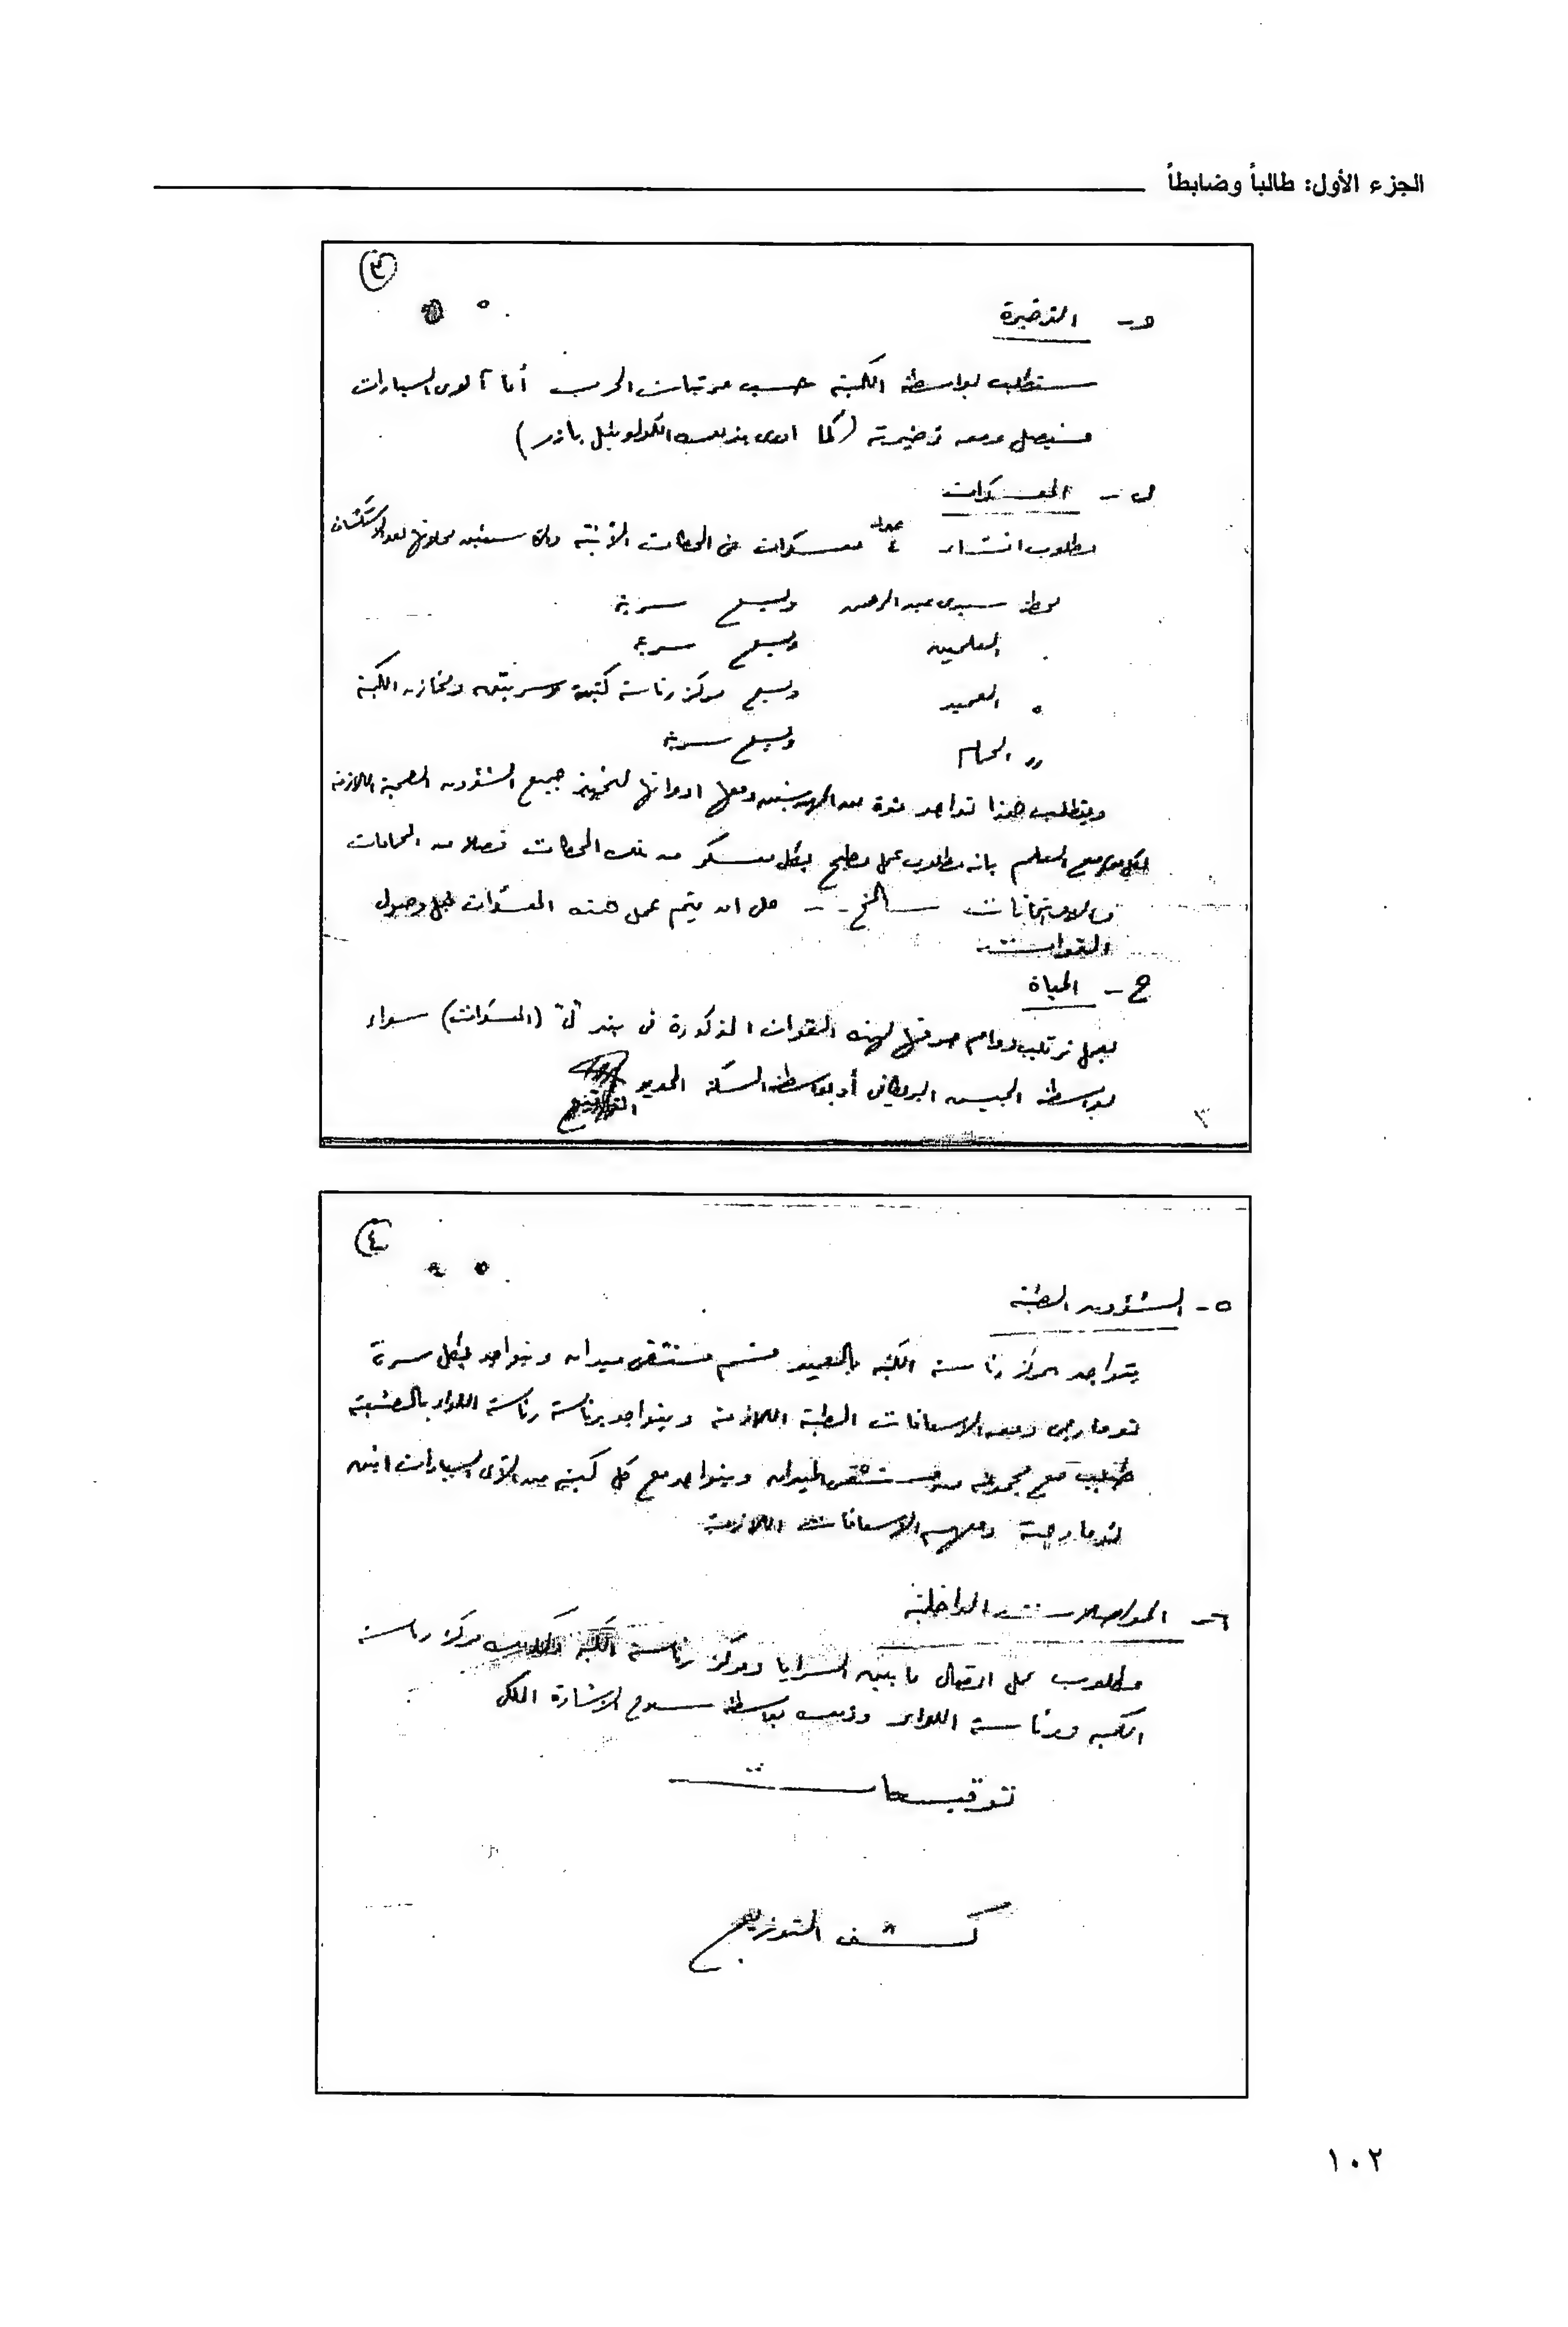 الجزء الأول: طالباً وضابطاً
٣
و- الذخيرة
ستطلب بواسطة الكتيبة حسب مرتبات الحرب أما آلاى السيارات
فسيصل ومعه ذخيرته (كما ادى بذلك الكولونيل باذر)
ل- المعسكرات
مطلوب انشاء عدد ٤ معسكرات فى المحطات الآتية
محطة سيدى عبد الرحمن ويسع سرية
العلمين ويسع سرية
العميد ويسع مركز رئاسة كتيبة وسريتين ومخازن الكتيبة
الحمام ويسع سرية
ويتطلب هذا تواجد قوة من المهندسين ومعها ادواتها لتجهيز جميع الشؤون الصحية اللازمة
مع العلم بانه مطلوب عمل مطبخ بكل معسكر من تلك المحطات فضلا عن الحمامات
الخ - - على ان يتم عمل هذه المعسكرات قبل وصول
القوات
ح- المياة
يعمل ترتيب صرفها لهذه القوات المذكورة فى بند "ل" (المعسكرات) سواء
بواسطة الجيش البريطانى أو بواسطة السكة الحديد
٣
٤
٥- الشؤون الطبية
يتواجد بمركز رئاسة الكتيبة بالعميد قسم مستشفى ميدان ويتواجد بكل سرية
تومارجى ومعه الاسعافات الطبية اللازمة ويتواجد برئاسة رئاسة اللواء
طبيب مع مجموعة من مستشفى الميدان ويتواجد مع كل كتيبة من آلاى السيارات اثنين
تومارجية ومعهم الاسعافات اللازمة
٦- المواصلات الداخلية
مطلوب عمل اتصال ما بين السرايا ومركز رئاسة الكتيبة مركز رئاسة
الكتيبة ورئاسة اللواء وذلك بواسطة سلاح الاشارة الملكى
توقيعات
كشف التوزيع
١٠٢